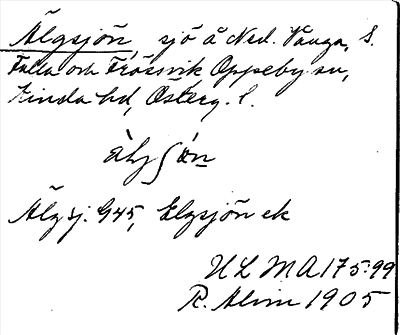 Älgsjön, sjö å Ned. Vånga, S.
Falla och Frössvik, Oppeby sn,
Kinda hd, Österg. l.
Älgsj. G45, Elgsjön ek
ULMA 175:99
R. Alm 1905